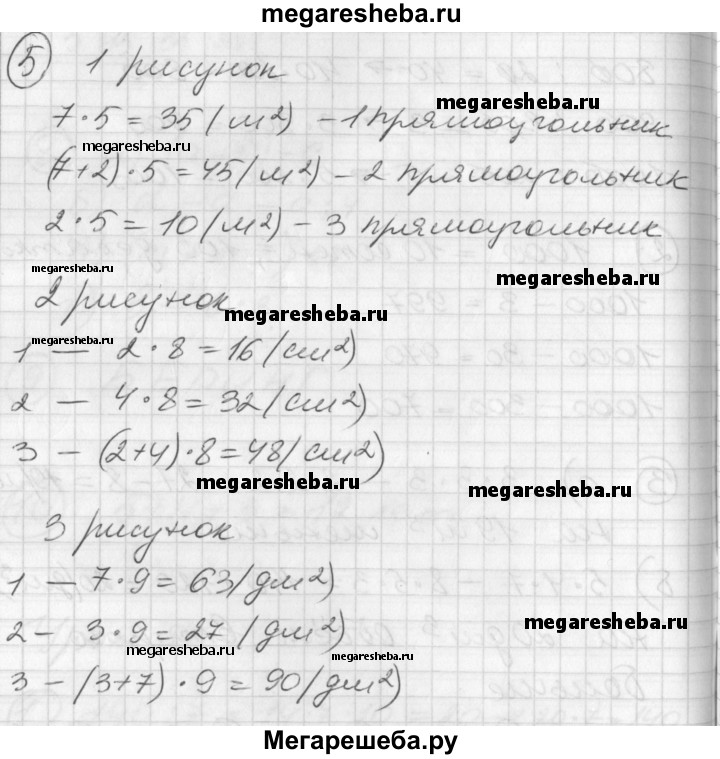 megaresheba.ru
5 1 рисунок
7·5=35(м²) – 1 прямоугольник
megaresheba.ru
megaresheba.ru
(7+2)·5=45(м²) – 2 прямоугольник
2·5=10(м²) – 3 прямоугольник
megaresheba.ru
megaresheba.ru
2 рисунок
megaresheba.ru
megaresheba.ru
1 — 2·8=16(см²)
2 — 4·8=32(см²)
3 — (2+4)·8=48(см²)
megaresheba.ru
megaresheba.ru
3 рисунок
1 — 7·9=63(дм²)
2 — 3·9=27(дм²)
megaresheba.ru
megaresheba.ru
megaresheba.ru
3 — (3+7)·9=90(дм²)
Мегарешеба.ру